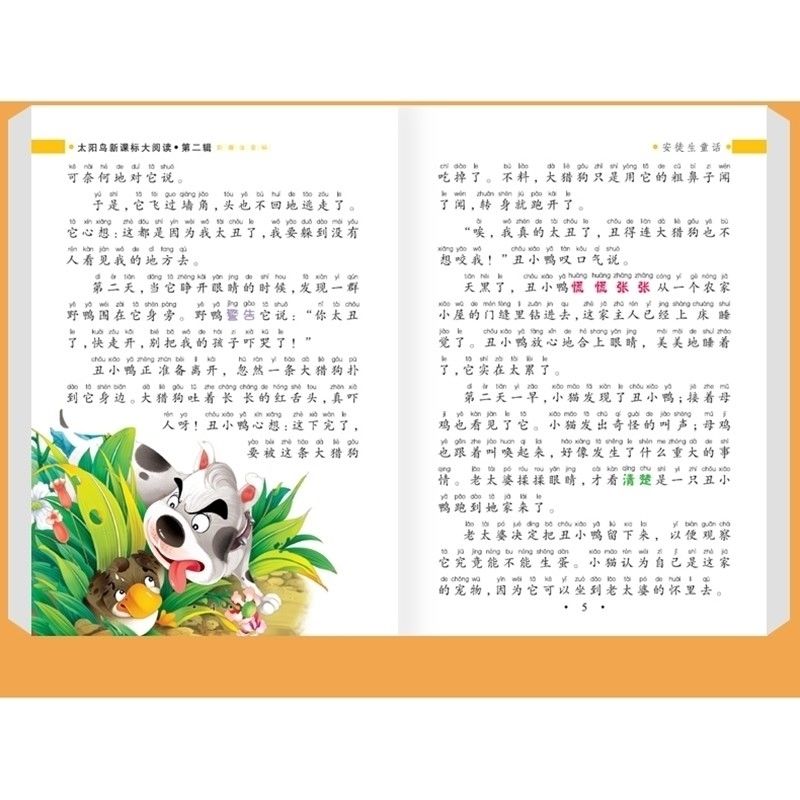 太阳鸟新课标大阅读•第二辑 彩图注音版
kě nài hé de duì tā shuō
可奈何地对它说。
yú shì tā fēi guò qiáng jiǎo tóu yě bù huí de táo zǒu le
于是,它飞过墙角,头也不回地逃走了。
tā xīn xiǎng zhè dōu shì yīn wèi wǒ tài chǒu le wǒ yào duǒ dào méi yǒu
它心想:这都是因为我太丑了,我要躲到没有
rén kàn jiàn wǒ de dì fang qù
人看见我的地方去。
dì èr tiān dāng tā zhēng kāi yǎn jing de shí hou fā xiàn yì qún
第二天,当它睁开眼睛的时候,发现一群
yě yā wéi zài tā shēn páng yě yā jǐng gào tā shuō nǐ tài chǒu
野鸭围在它身旁。野鸭警告它说:“你太丑
le kuài zǒu kāi bié bǎ wǒ de hái zi xià kū le
了,快走开,别把我的孩子吓哭了!”
chǒu xiǎo yā zhèng zhǔn bèi lí kāi hū rán yì tiáo dà liè gǒu pū
丑小鸭正准备离开,忽然一条大猎狗扑
dào tā shēn biān dà liè gǒu tǔ zhe cháng cháng de hóng shé tou zhēn xià
到它身边。大猎狗吐着长长的红舌头,真吓
rén ya chǒu xiǎo yā xīn xiǎng zhè xià wán le
人呀!丑小鸭心想:这下完了,
yào bèi zhè tiáo dà liè gǒu
要被这条大猎狗
安徒生童话
chī diào le bú liào dà liè gǒu zhǐ shì yòng tā de cū bí zi wén
吃掉了。不料,大猎狗只是用它的粗鼻子闻
le wén zhuǎn shēn jiù pǎo kāi le
了闻,转身就跑开了。
ài wǒ zhēn de tài chǒu le chǒu de lián dà liè gǒu yě bù
“唉,我真的太丑了,丑得连大猎狗也不
xiǎng yǎo wǒ chǒu xiǎo yā tàn kǒu qì shuō
想咬我!”丑小鸭叹口气说。
tiān hēi le chǒu xiǎo yā huāng huāng zhāng zhāng cóng yí gè nóng jiā
天黑了,丑小鸭慌慌张张从一个农家
xiǎo wū de mén fèng lǐ zuān jìn qu zhè jiā zhǔ rén yǐ jīng shàng chuáng shuì
小屋的门缝里钻进去,这家主人已经上床睡
jiào le chǒu xiǎo yā fàng xīn de hé shang yǎn jing měi měi de shuì zháo
觉了。丑小鸭放心地合上眼睛,美美地睡着
le tā shí zài tài lèi le
了,它实在太累了。
dì èr tiān yì zǎo xiǎo māo fā xiàn le chǒu xiǎo yā jiē zhe mǔ
第二天一早,小猫发现了丑小鸭;接着母
jī yě kàn jiàn le tā xiǎo māo fā chū qí guài de jiào shēng mǔ jī
鸡也看见了它。小猫发出奇怪的叫声;母鸡
yě gēn zhe jiào huan qǐ lai hǎo xiàng fā shēng le shén me zhòng dà de shì
也跟着叫唤起来,好像发生了什么重大的事
qing lǎo tài pó róu rou yǎn jing cái kàn qīng chu shì yì zhī chǒu xiǎo
情。老太婆揉揉眼睛,才看清楚是一只丑小
yā pǎo dào tā jiā lái le
鸭跑到她家来了。
lǎo tài pó jué dìng bǎ chǒu xiǎo yā liú xia lai yǐ biàn guān chá
老太婆决定把丑小鸭留下来,以便观察
tā jiū jìng néng bu néng shēng dàn xiǎo māo rèn wéi zì jǐ shì zhè jiā
它究竟能不能生蛋。小猫认为自己是这家
de chǒng wù yīn wèi tā kě yǐ zuò dào lǎo tài pó de huái lǐ qù
的宠物,因为它可以坐到老太婆的怀里去。
• 5 •